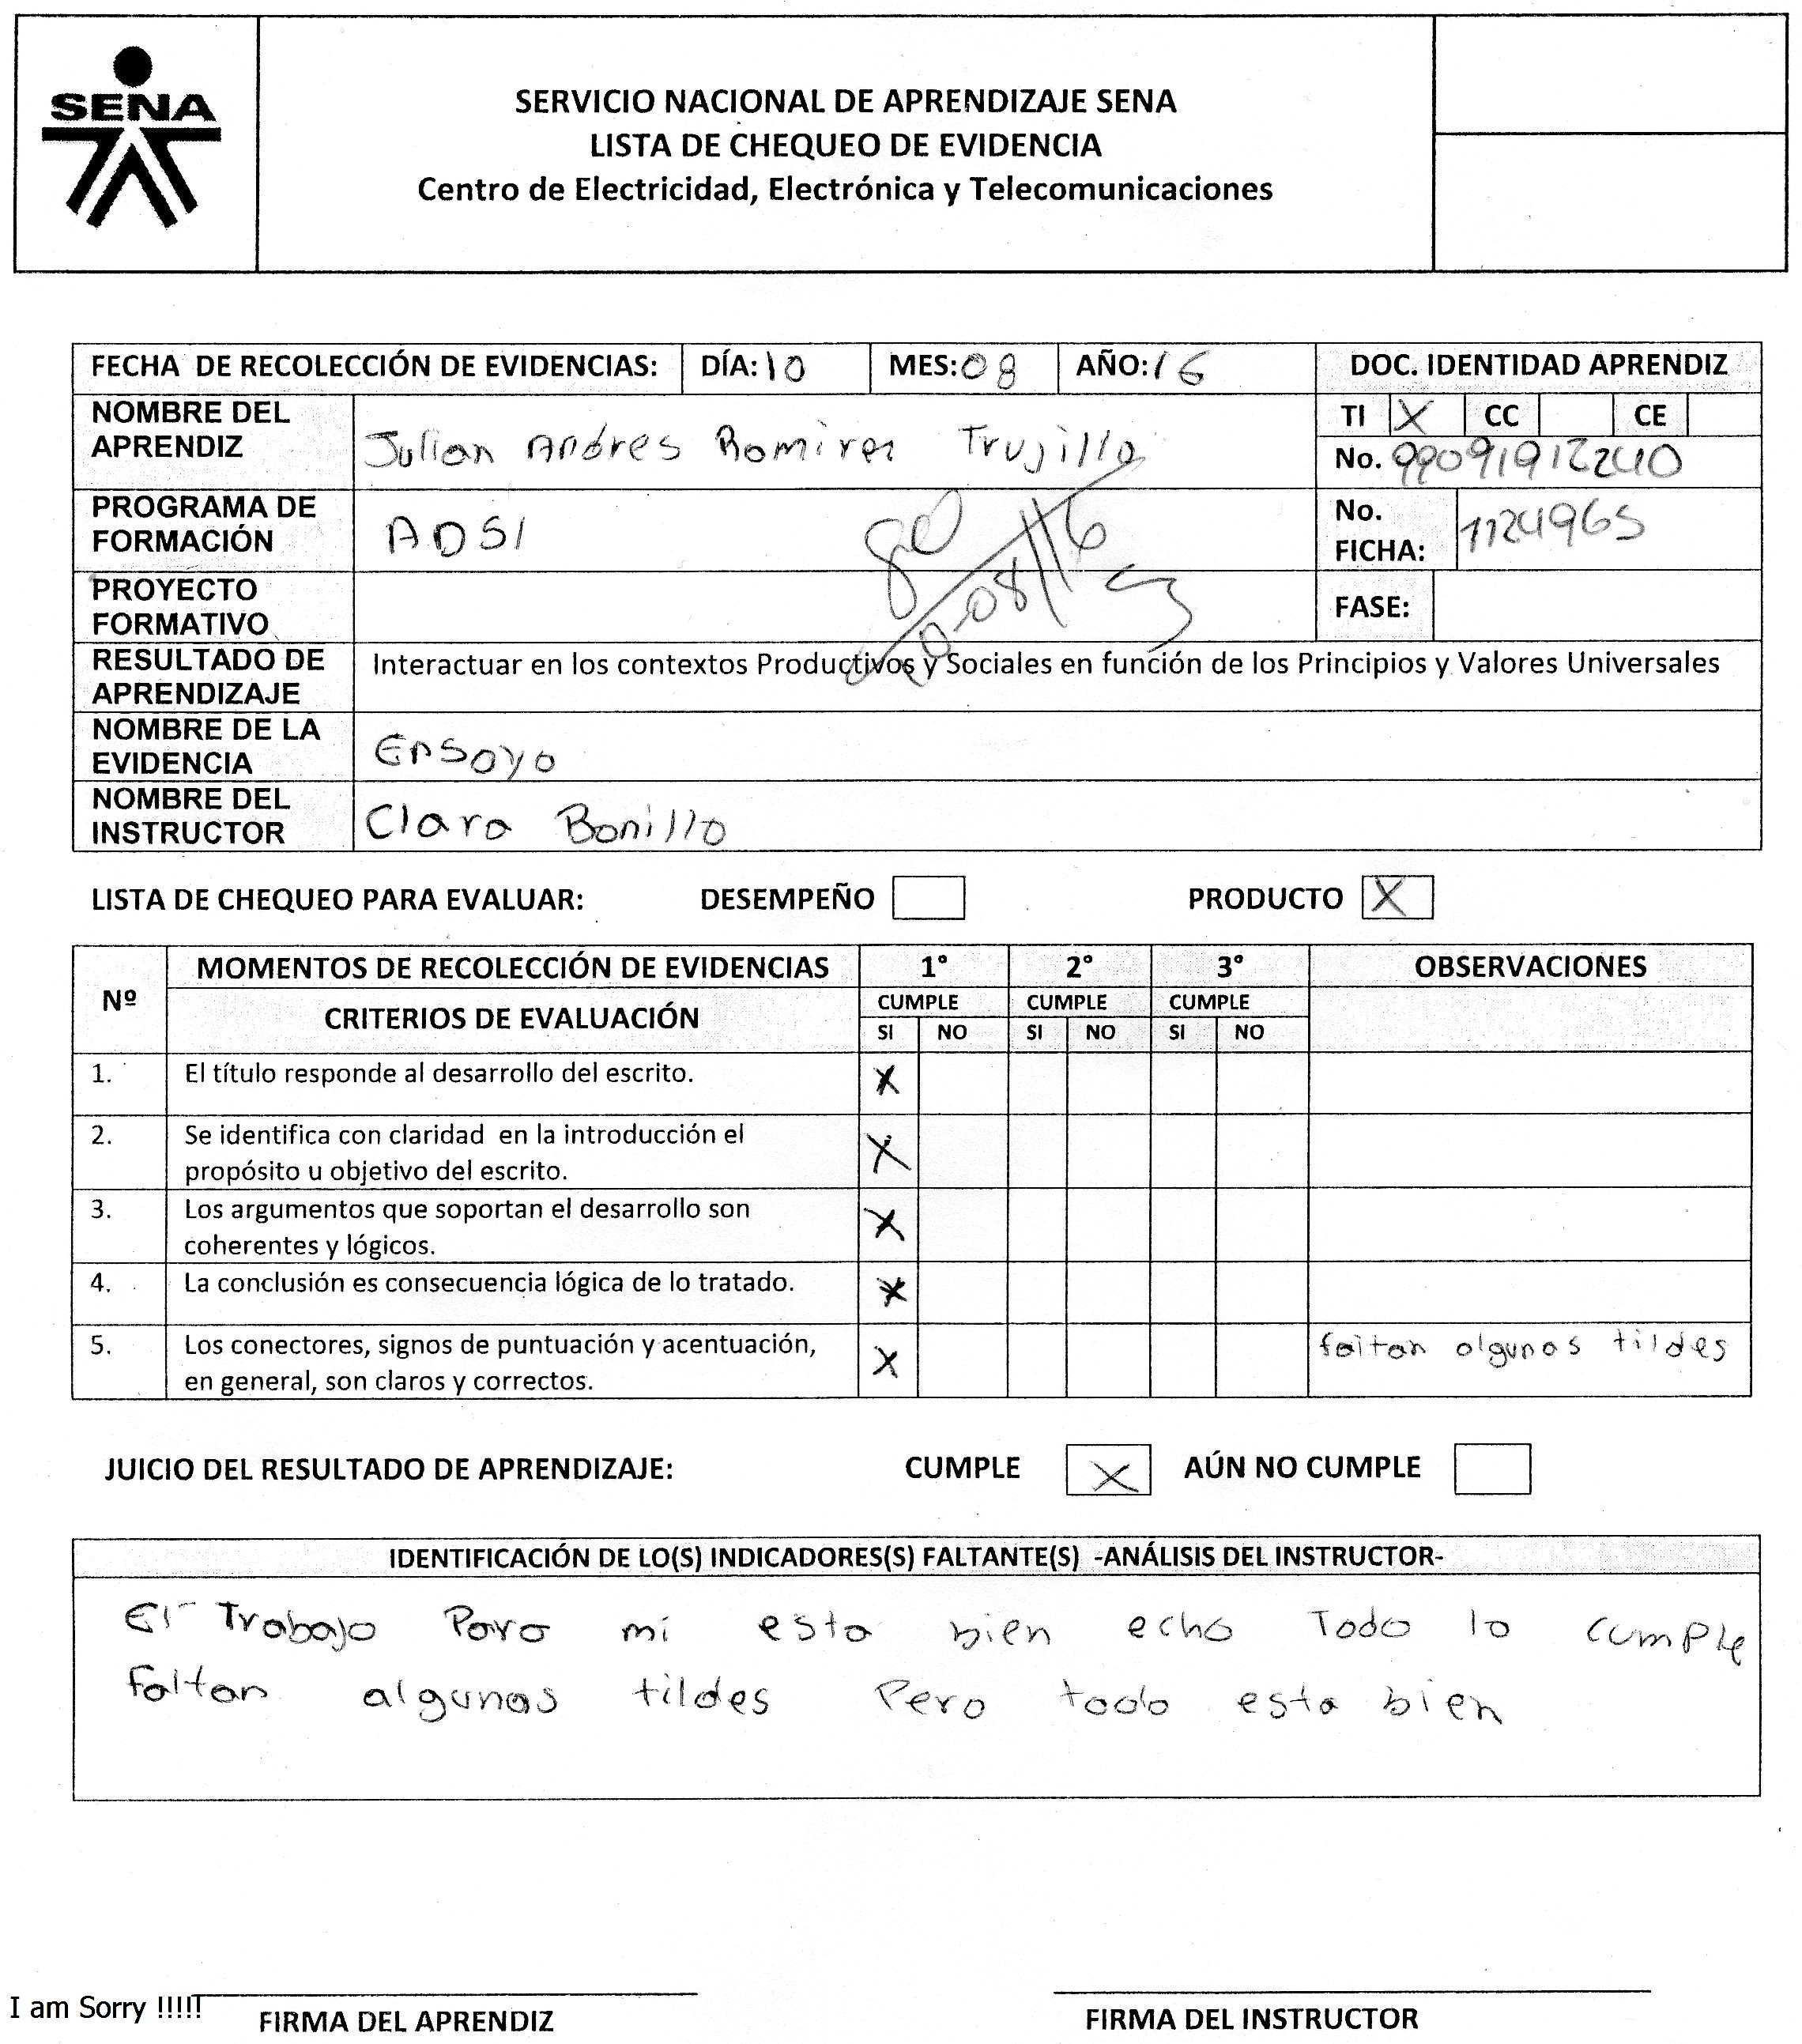 SENA
SERVICIO NACIONAL DE APRENDIZAJE SENA
LISTA DE CHEQUEO DE EVIDENCIA
Centro de Electricidad, Electrónica y Telecomunicaciones
FECHA DE RECOLECCIÓN DE EVIDENCIAS: DÍA: 10 MES: 08 AÑO: 16 DOC. IDENTIDAD APRENDIZ
NOMBRE DEL APRENDIZ Julian Andres Ramirez Trujillo TI X CC CE
No. 99091912240
PROGRAMA DE FORMACIÓN ADSI No. FICHA: 1124965
10-08/16
PROYECTO FORMATIVO FASE:
RESULTADO DE APRENDIZAJE Interactuar en los contextos Productivos y Sociales en función de los Principios y Valores Universales
NOMBRE DE LA EVIDENCIA Ensayo
NOMBRE DEL INSTRUCTOR Clara Bonilla
LISTA DE CHEQUEO PARA EVALUAR: DESEMPEÑO PRODUCTO X
Nº MOMENTOS DE RECOLECCIÓN DE EVIDENCIAS 1° 2° 3° OBSERVACIONES
CRITERIOS DE EVALUACIÓN CUMPLE CUMPLE CUMPLE
SI NO SI NO SI NO
1. El título responde al desarrollo del escrito. X
2. Se identifica con claridad en la introducción el
propósito u objetivo del escrito. X
3. Los argumentos que soportan el desarrollo son
coherentes y lógicos. X
4. La conclusión es consecuencia lógica de lo tratado. X
5. Los conectores, signos de puntuación y acentuación, X faltan algunas tildes
en general, son claros y correctos.
JUICIO DEL RESULTADO DE APRENDIZAJE: CUMPLE X AÚN NO CUMPLE
IDENTIFICACIÓN DE LO(S) INDICADORES(S) FALTANTE(S) -ANÁLISIS DEL INSTRUCTOR-
El Trabajo Para mi esta bien echo Todo lo cumple
Faltan algunas tildes Pero todo esta bien
I am Sorry !!!!!
FIRMA DEL APRENDIZ FIRMA DEL INSTRUCTOR